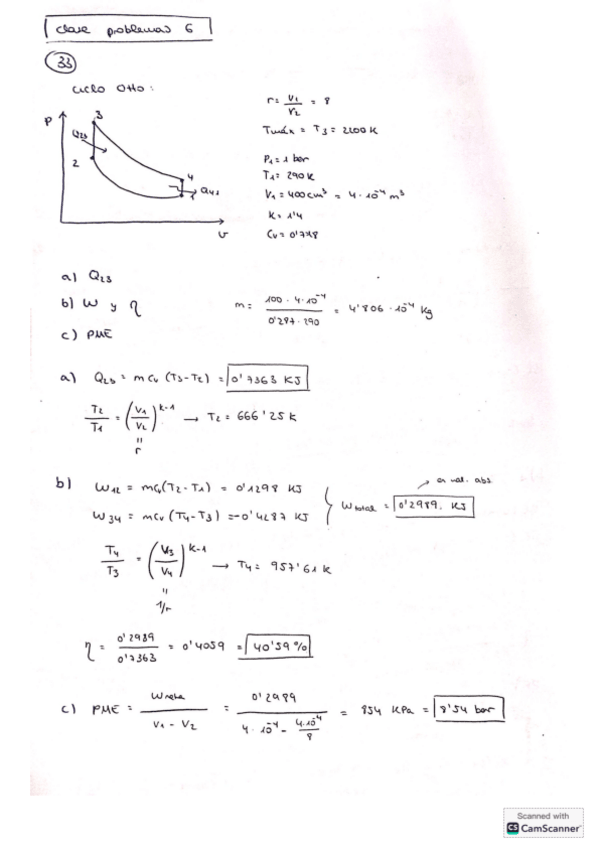 clase problemas 6
33
Ciclo Otto:
P
3
Q23
2
4
Q41
1
v
r = V1/V2 = 8
Tmáx = T3 = 2200 K
P1 = 1 bar
T1 = 290 K
V1 = 400 cm³ = 4·10⁻⁴ m³
K = 1'4
Cv = 0'718
a) Q23
b) W y η
m = 100 · 4·10⁻⁴ / 0'287·290 = 4'806·10⁻⁴ Kg
c) PME
a) Q23 = mCv (T3-T2) = 0'7363 KJ
T2/T1 = (V1/V2)^K-1 → T2 = 666'25 K
"
r
b) W12 = mCv(T2-T1) = 0'1298 KJ
W34 = mCv (T4-T3) = -0'4287 KJ
Wtotal = 0'2989. KJ
→ en val. abs.
T4/T3 = (V3/V4)^K-1 → T4 = 957'61 K
"
1/r
η = 0'2989/0'7363 = 0'4059 = 40'59 %
c) PME = Wneto / V1 - V2 = 0'2989 / 4·10⁻⁴ - 4·10⁻⁴/8 = 854 KPa = 8'54 bar
Scanned with
CS CamScanner